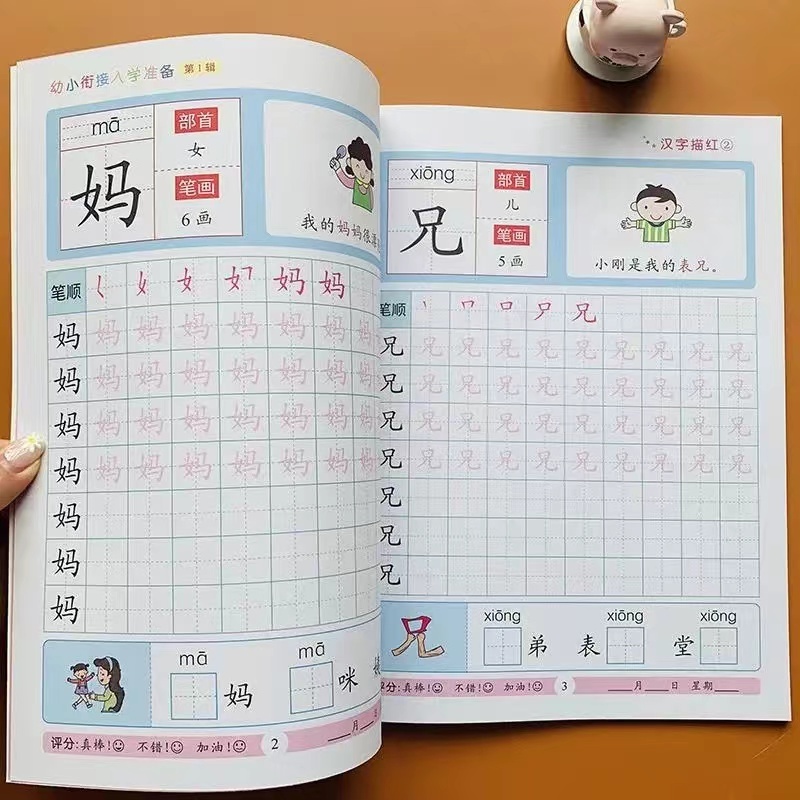 幼小衔接入学准备 第1辑
mā
妈
部首
女
笔画
6画
我的妈妈很漂
笔顺 𡿨 女 女 妈 妈
妈 妈 妈 妈 妈 妈 妈
妈 妈 妈 妈 妈 妈 妈
妈 妈 妈 妈 妈 妈 妈
妈 妈 妈 妈 妈 妈 妈
妈
妈
妈
mā mā
妈 咪
评分:真棒! 不错! 加油! 2 ____月
汉字描红②
xiōng
兄
部首
儿
笔画
5画
小刚是我的表兄。
笔顺 丶 口 口 尸 兄
兄 兄 兄 兄 兄 兄 兄 兄 兄 兄
兄 兄 兄 兄 兄 兄 兄 兄 兄 兄
兄 兄 兄 兄 兄 兄 兄 兄 兄 兄
兄 兄 兄 兄 兄 兄 兄 兄 兄 兄
兄
兄
兄
兄
xiōng xiōng xiōng
弟 表 堂
评分:真棒! 不错! 加油! 3 ____月____日 星期____